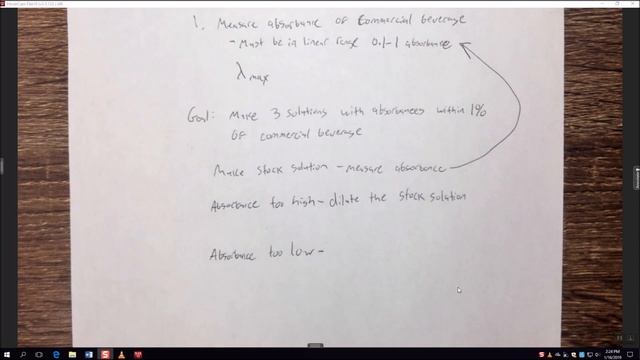 1. Measure absorbance of Commercial beverage
- Must be in linear range 0.1-1 absorbance
λmax
Goal: Make 3 solutions with absorbances within 1%
of commercial beverage
Make stock solution - measure absorbance
Absorbance too high - dilute the stock solution
Absorbance too low -
2:24 PM
1/16/2019